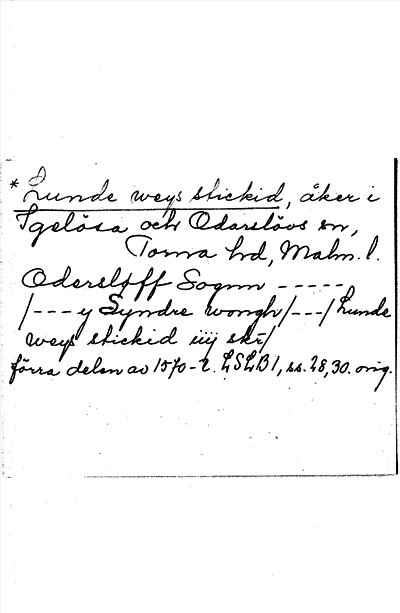 *Lunde weys stickid, åker i
Igelösa och Odarslövs sn,
Torna hd, Malm. l.
Odersløff Sognn -----
/--- y Syndre wongh/---/Lunde
weys stickid iiij skr/
förra delen av 1570-t. LSLB1, ss. 28, 30. orig.